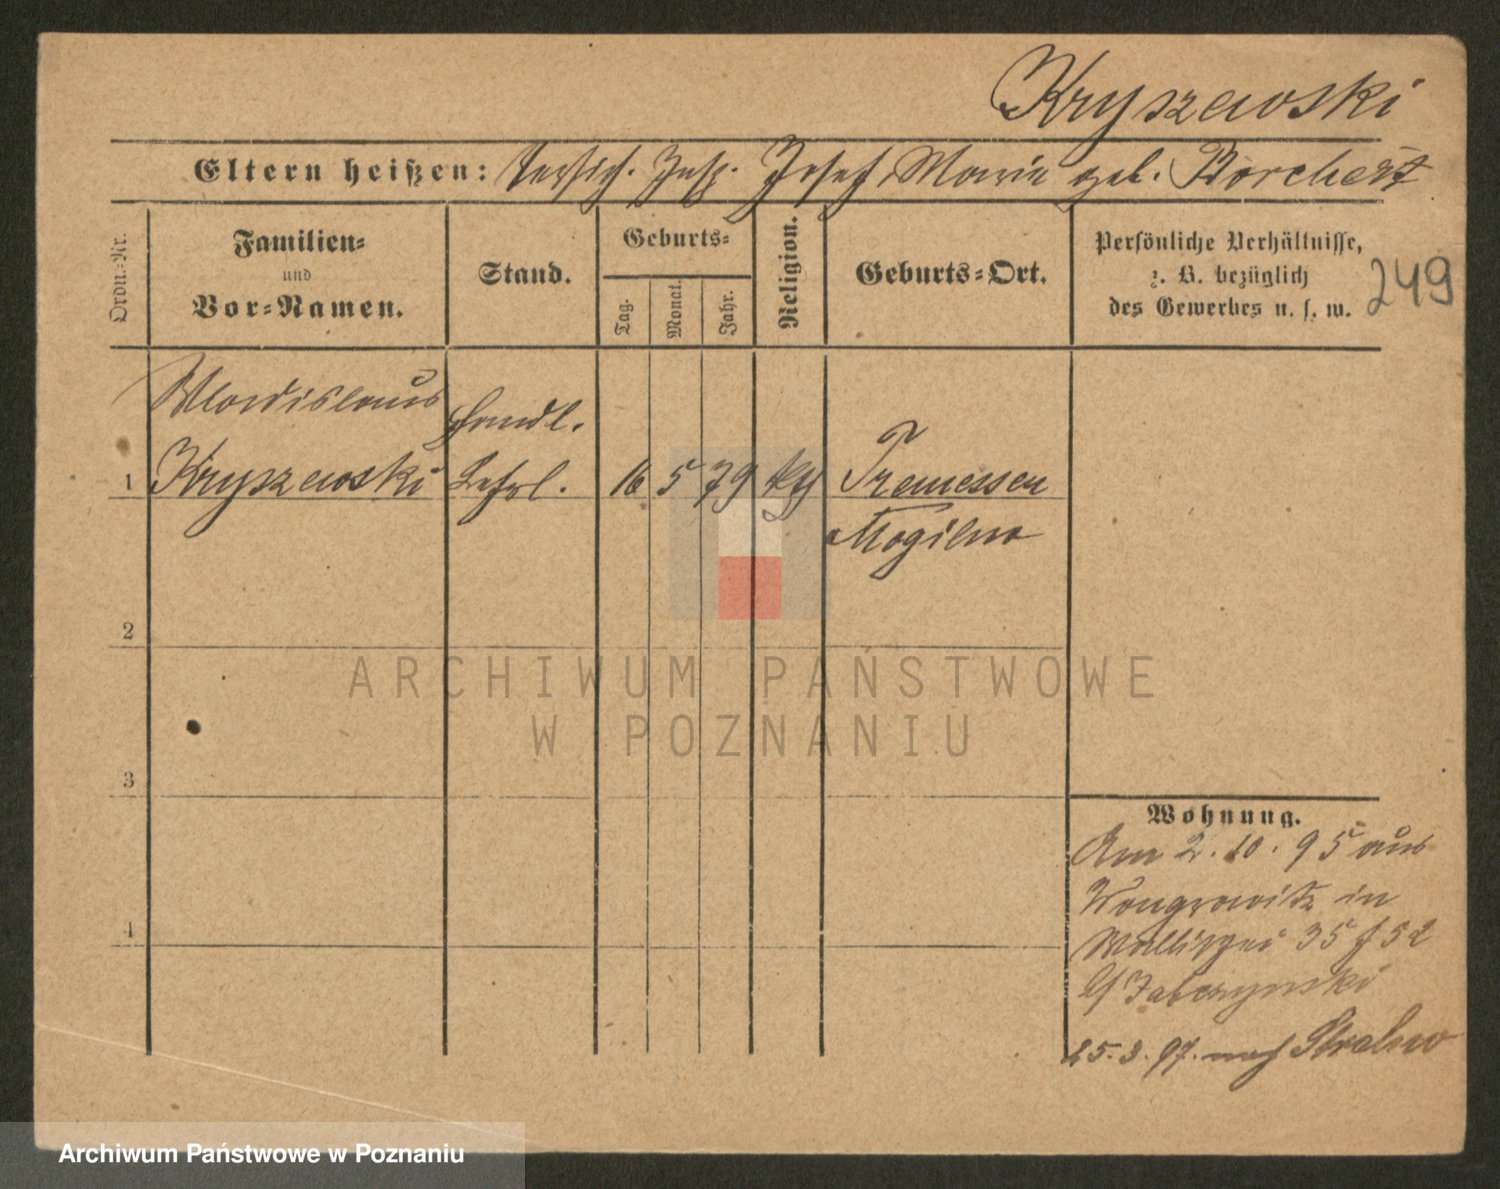 Kryszewski
Eltern heißen: Versich. Insp. Josef, Marie geb. Borchert
Ordn.-Nr.
Familien-
und
Vor-Namen.
Stand.
Geburts-
Tag.
Monat.
Jahr.
Religion.
Geburts-Ort.
Persönliche Verhältnisse,
z. B. bezüglich
des Gewerbes u. s. w.
249
Wladislaus
Handl.
1 Kryszewski Lehrl. 16 5 79 kth Tremessen
Mogilno
2
3
4
Wohnung.
Am 2.10.95 aus
Wongrowitz in
Wallischei 35
Jabczynski
25.3.97. nach Stralsow
ARCHIWUM PAŃSTWOWE
W POZNANIU
Archiwum Państwowe w Poznaniu